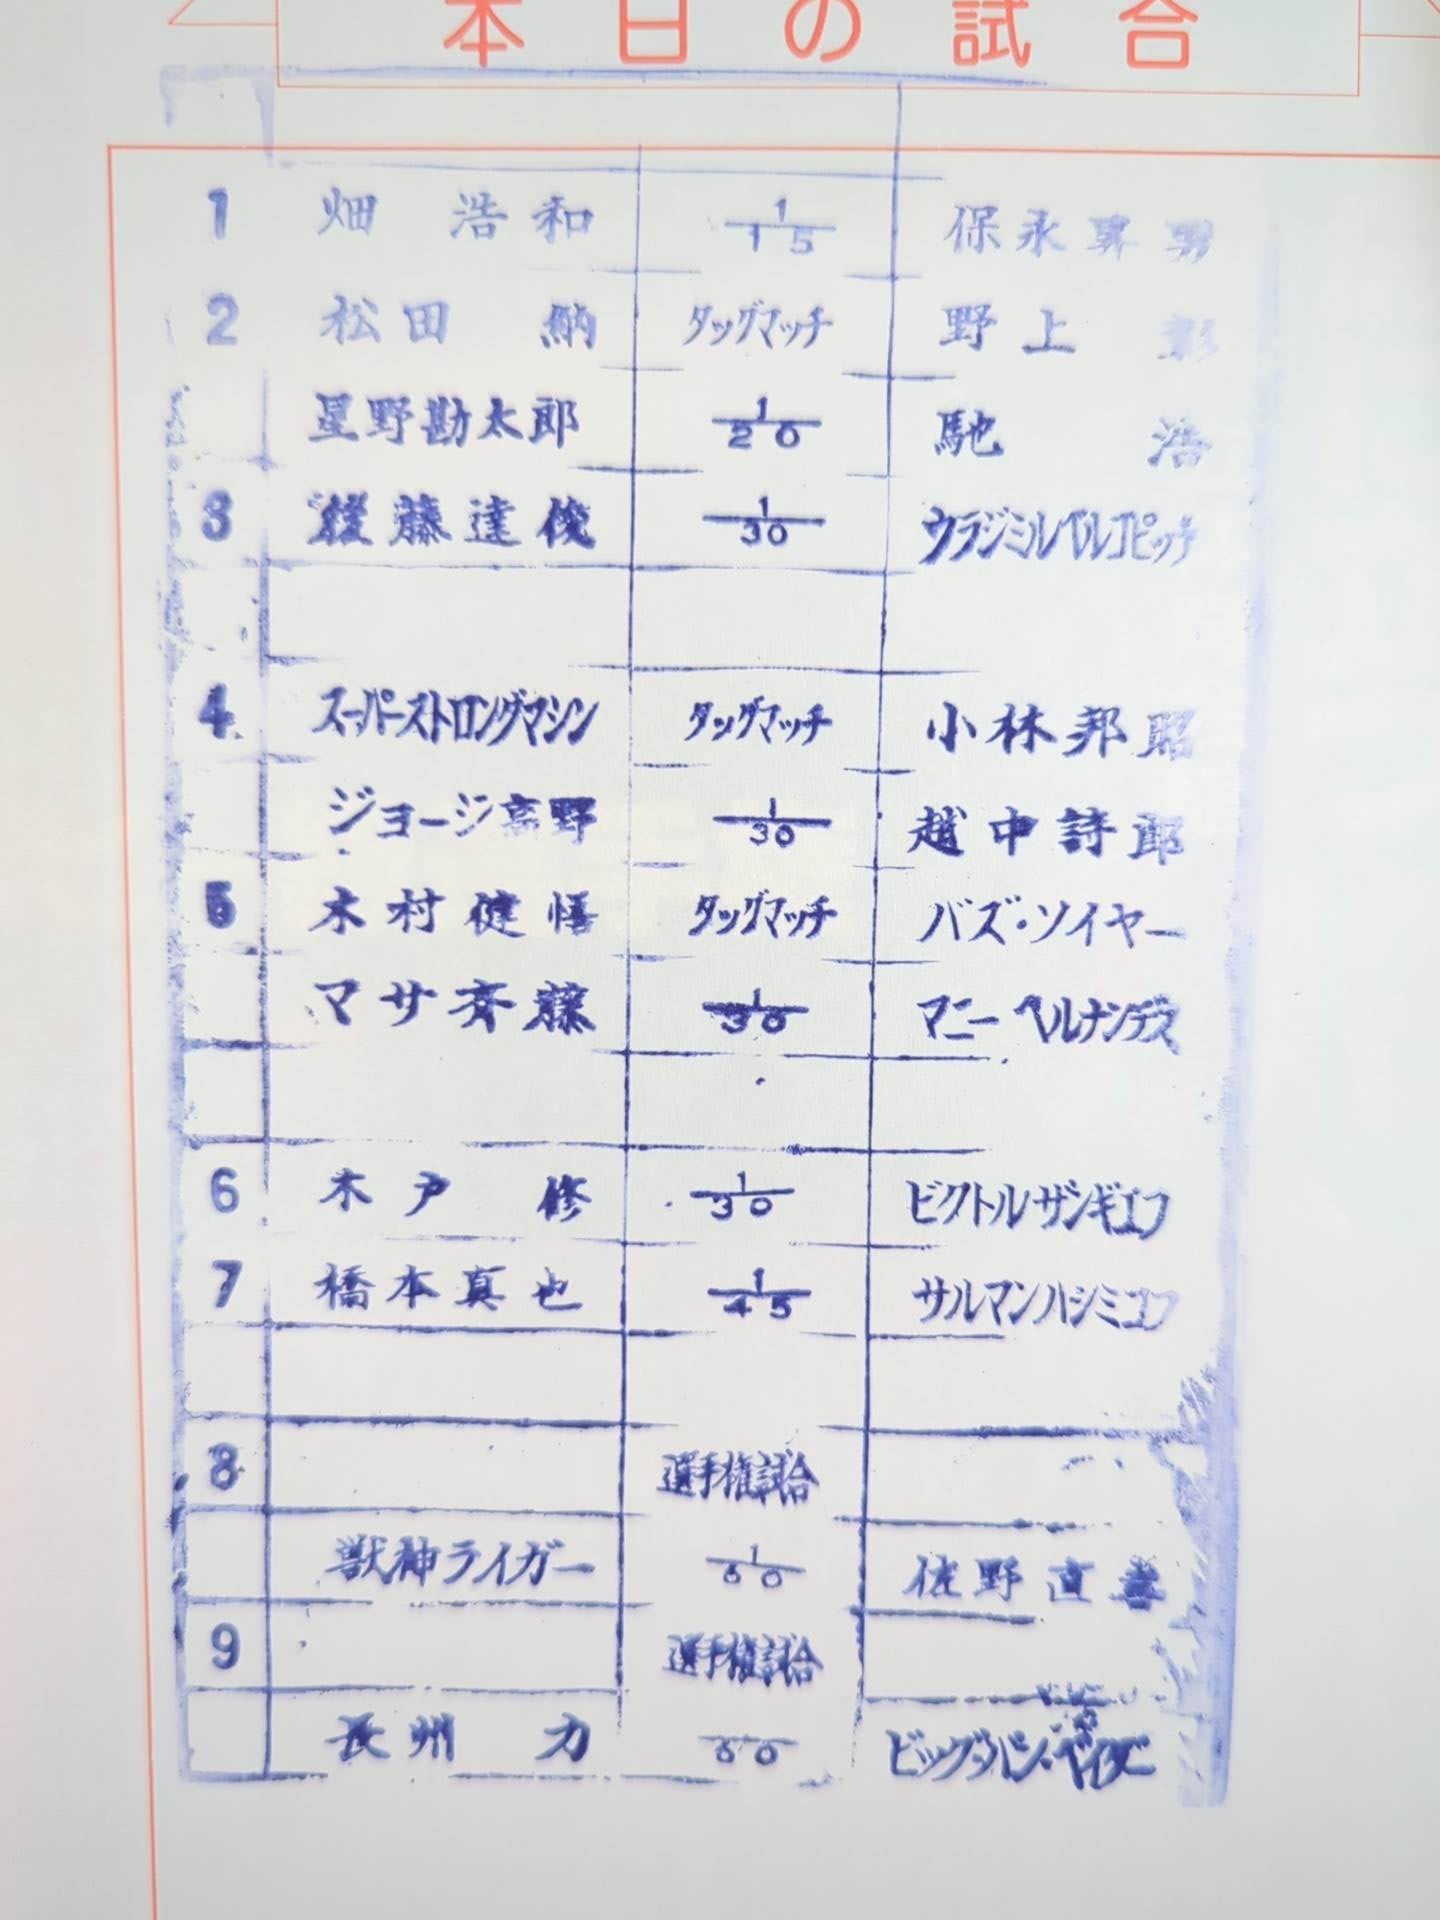 本日の試合
1 畑 浩和 1/15 保永昇男
2 松田 納 タッグマッチ 野上 彰
星野勘太郎 1/20 馳 浩
3 後藤達俊 1/30 ウラジミルベルコビッチ
4 スーパーストロングマシン タッグマッチ 小林邦昭
ジョージ高野 1/30 越中詩郎
5 木村健悟 タッグマッチ バズ・ソイヤー
マサ斉藤 1/30 マニーヘルナンデス
6 木戸 修 1/30 ビクトルザンギエフ
7 橋本真也 1/45 サルマンハシミコフ
8 選手権試合
獣神ライガー 1/60 佐野直喜
9 選手権試合
長州 力 1/60 ビッグ・バン・ベイダー